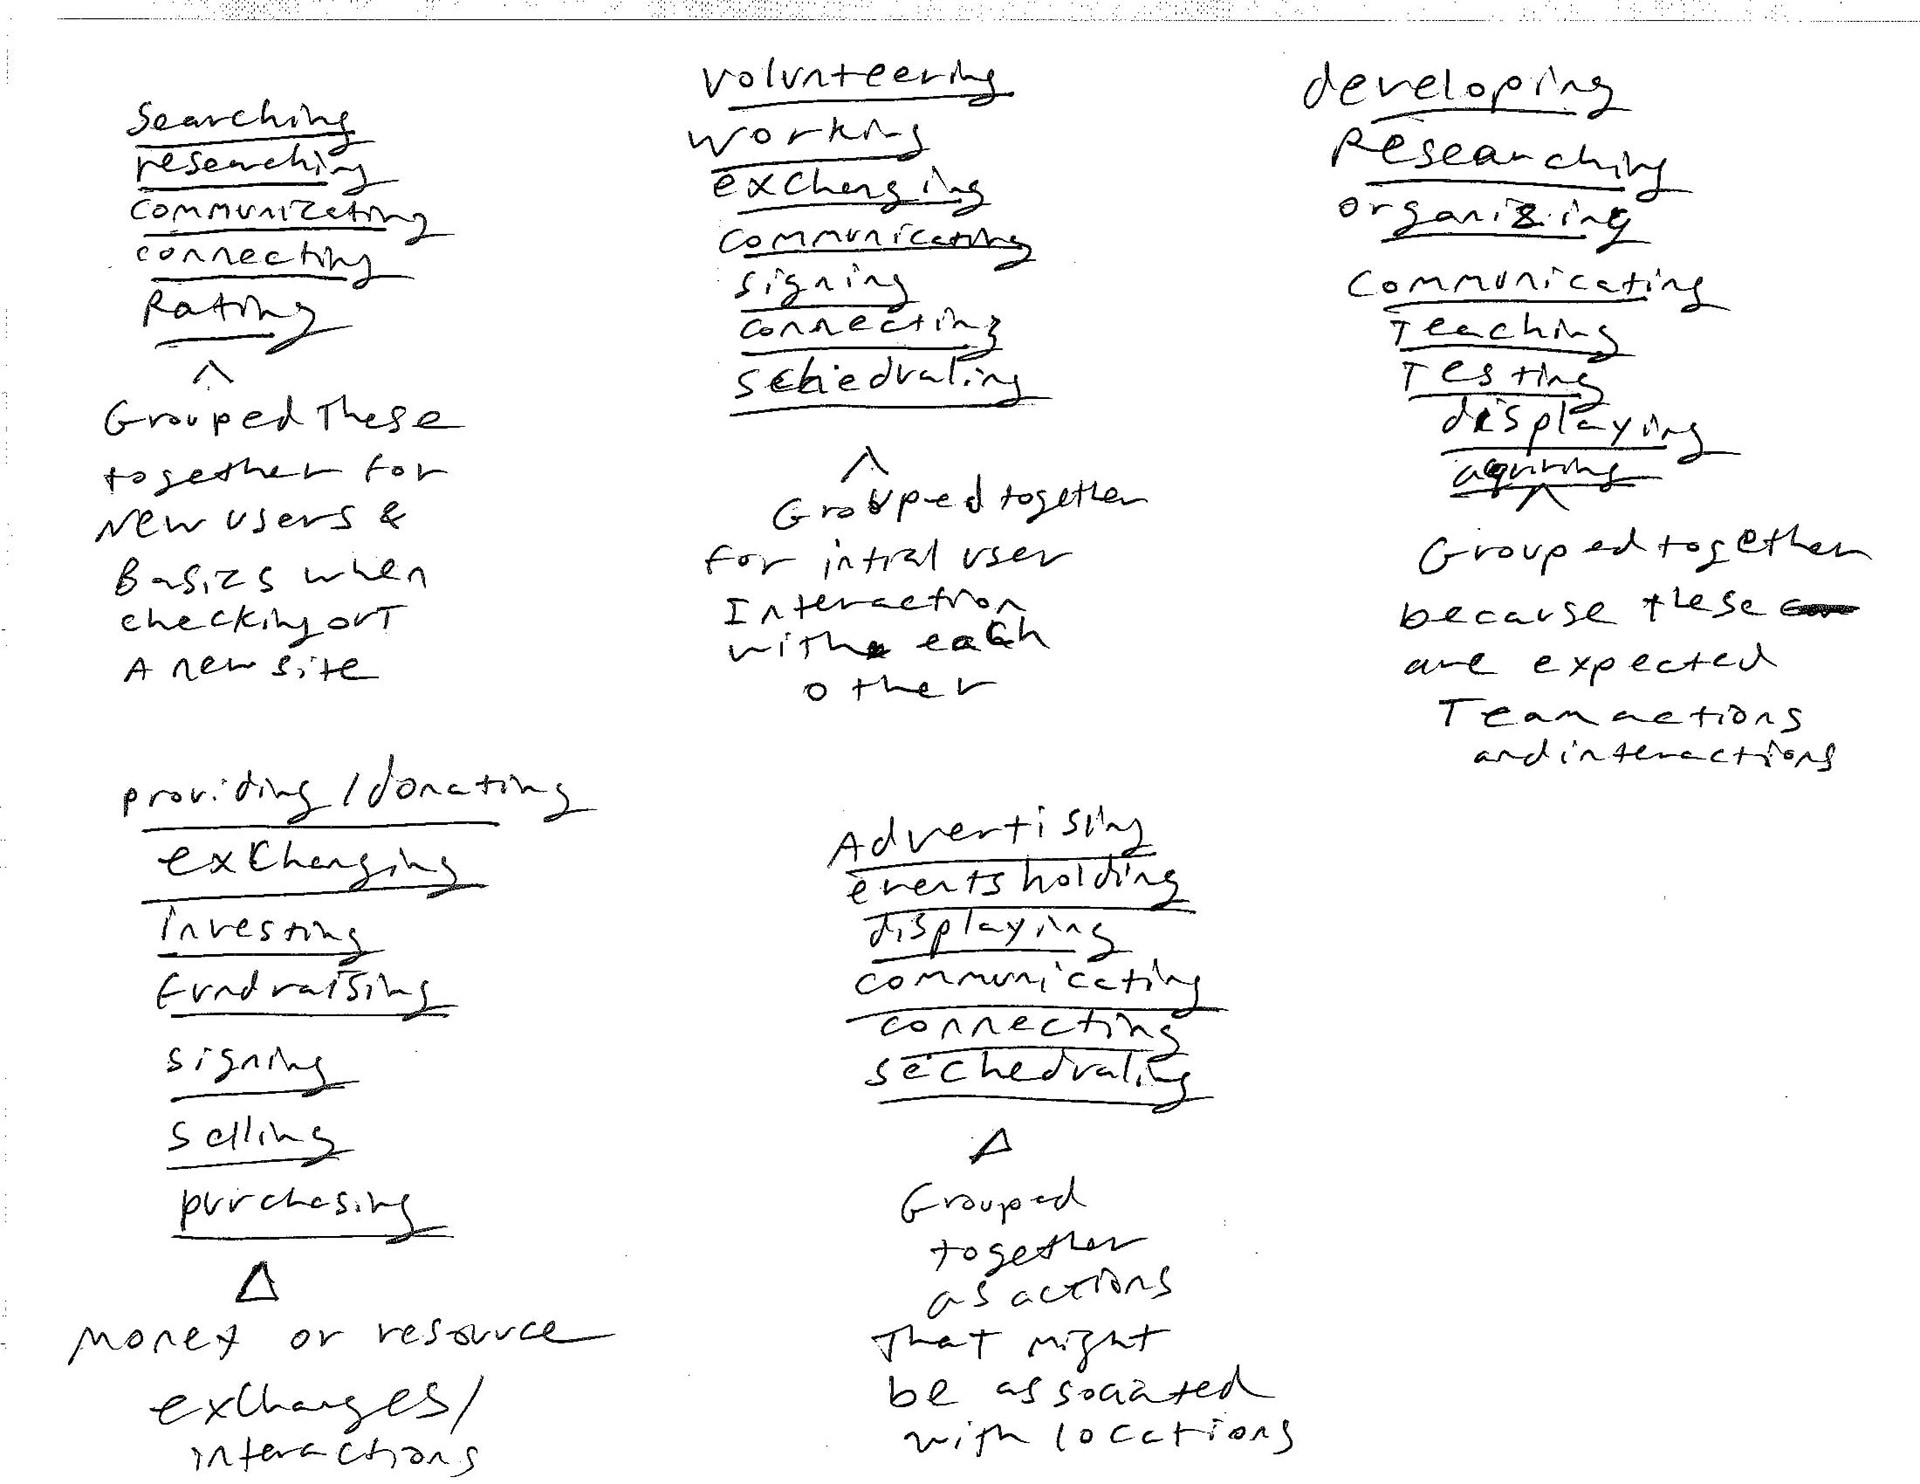 Searching
researching
communicating
connecting
Rating
^
Grouped These
together for
New users &
Basics when
checking out
A new site
volunteering
working
exchanging
communicating
signing
connecting
schedualing
^
Grouped together
for intial user
Interaction
with each
other
developing
Researching
organizing
communicating
Teaching
Testing
displaying
aquiring
^
Grouped together
because these
are expected
Team actions
and interactions
providing / donating
exchanging
investing
fundraising
signing
selling
purchasing
Money or resource
exchanges/
interactions
Advertising
events holding
displaying
communicating
connecting
sechedualing
Grouped
together
as actions
That might
be associated
with locations